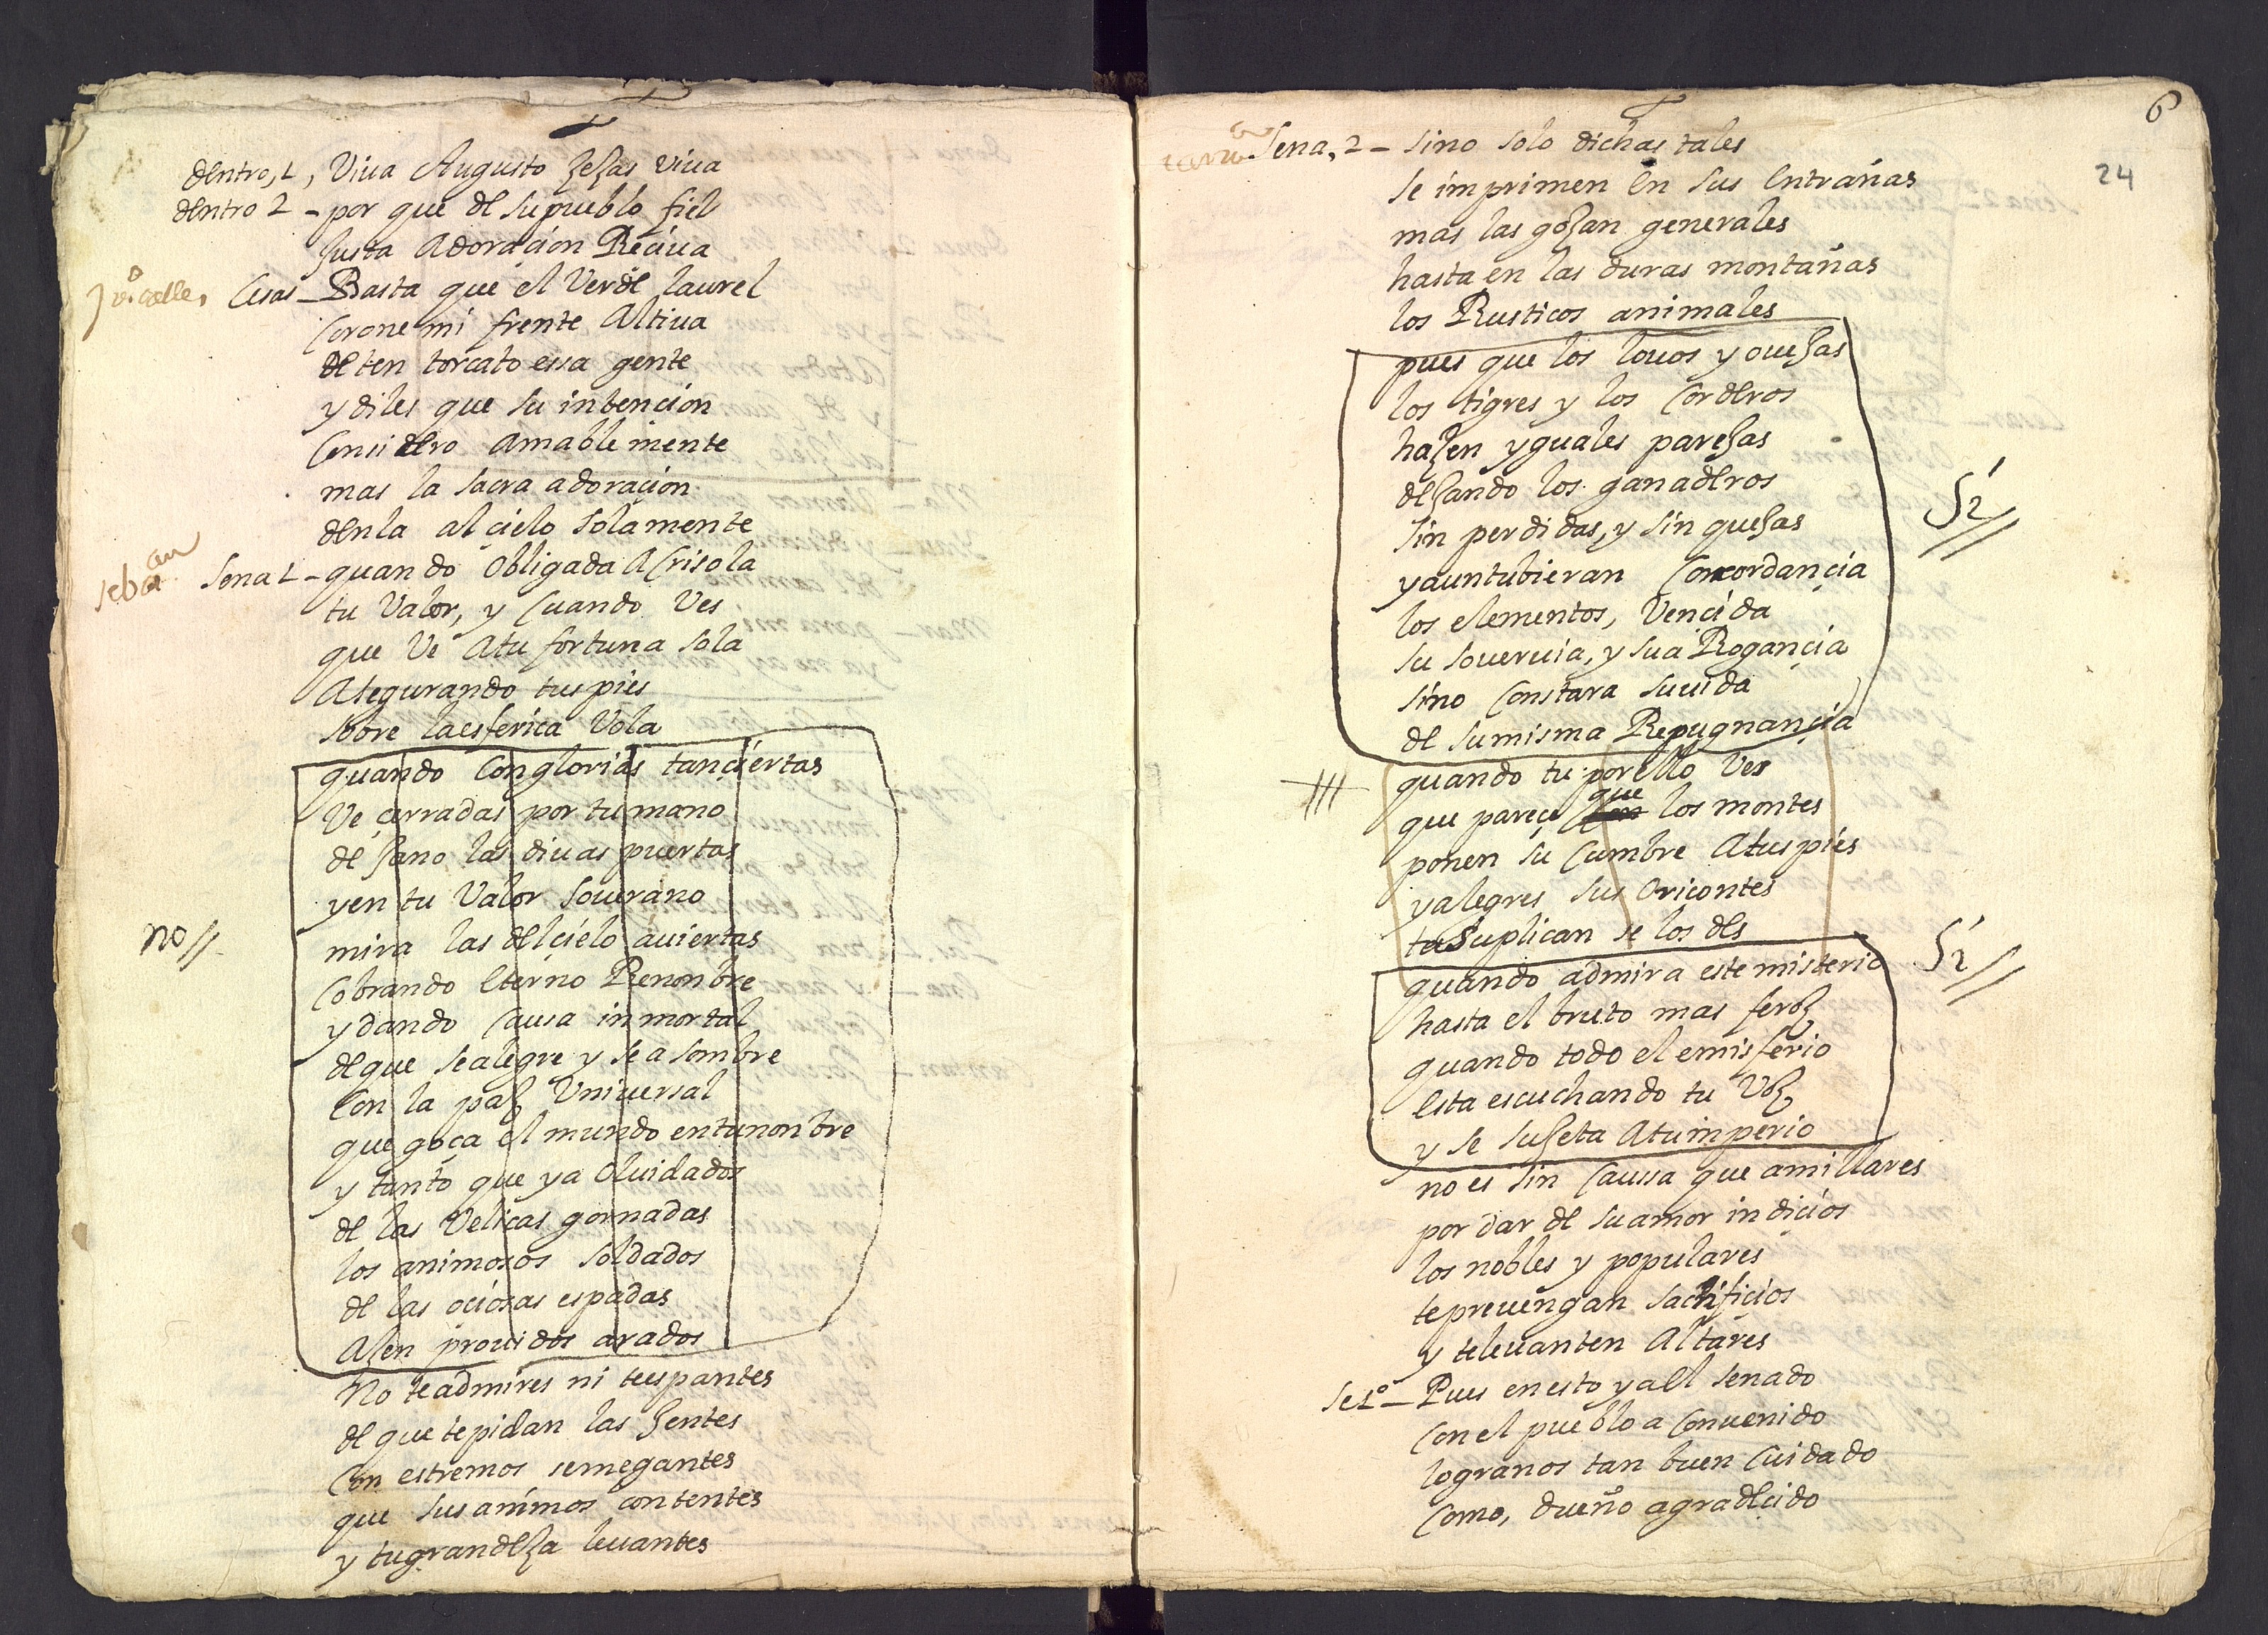 dentro, 1, Viua Augusto zesar viua
dentro 2 - por que de su pueblo fiel
Justa Adoraçion Reciua
Ju.o calle, Cesar - Basta que el Verde laurel
Corone mi frente Altiua
deten torcato essa gente
y diles que su intencion
Considero Amable mente
mas la sacra adoracion
denla al çielo solamente
Sena 1 - quando obligada Acrisola
tu Valor, y Cuando Ves
que Ve Atu fortuna sola
Asegurando tus pies
sobre la esferica Vola
quando Con glorias tan ciertas
Ve çerradas por tu mano
de Jano las diuas puertas
y en tu Valor souerano
mira las del cielo auiertas
Cobrando Eterno Renonbre
y dando Causa inmortal
de que se alegre y se asombre
Con la paz Vniuersal
que goça el mundo entunonbre
y tanto que ya oluidados
de las Velicas gornadas
los animosos soldados
de las ociosas espadas
Azen prouidos arados
no//
No te admires ni te espantes
de que te pidan las Jentes
Con estremos semegantes
que sus animos contentes
y tu grandeza leuantes
6
24
Sena, 2 - sino solo dichas tales
se imprimen En sus Entrañas
mas las gozan generales
hasta en las duras montañas
los Rusticos animales
pues que los louos y ouejas
los tigres y los Corderos
hazen yguales parejas
dejando los ganaderos
sin perdidas, y sin quejas
y aun tubieran Concordançia
los elementos, Vencida
su souervia, y su a Rogançia
sino Constara su uida
de su misma Repugnançia
Si//
quando tu por ello Ves
que pareçe que los montes
ponen su Cumbre Atus pies
y alegres sus Oricontes
te suplican se los des
quando admira este misterio
hasta el bruto mas feroz
quando todo el emisferio
Esta escuchando tu Voz
y se sujeta Atu imperio
Si//
no es sin Caussa que amillares
por dar de su amor indiciós
los nobles y populares
te preuengan sacrificios
y te leuanten Altares
Se 1º - Pues en esto ya El senado
Con el pueblo a Conuenido
logranos tan buen Cuidado
Como, dueño agradecido